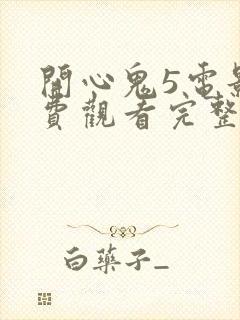 開心鬼5电影
費觀看完整
白蘗子_